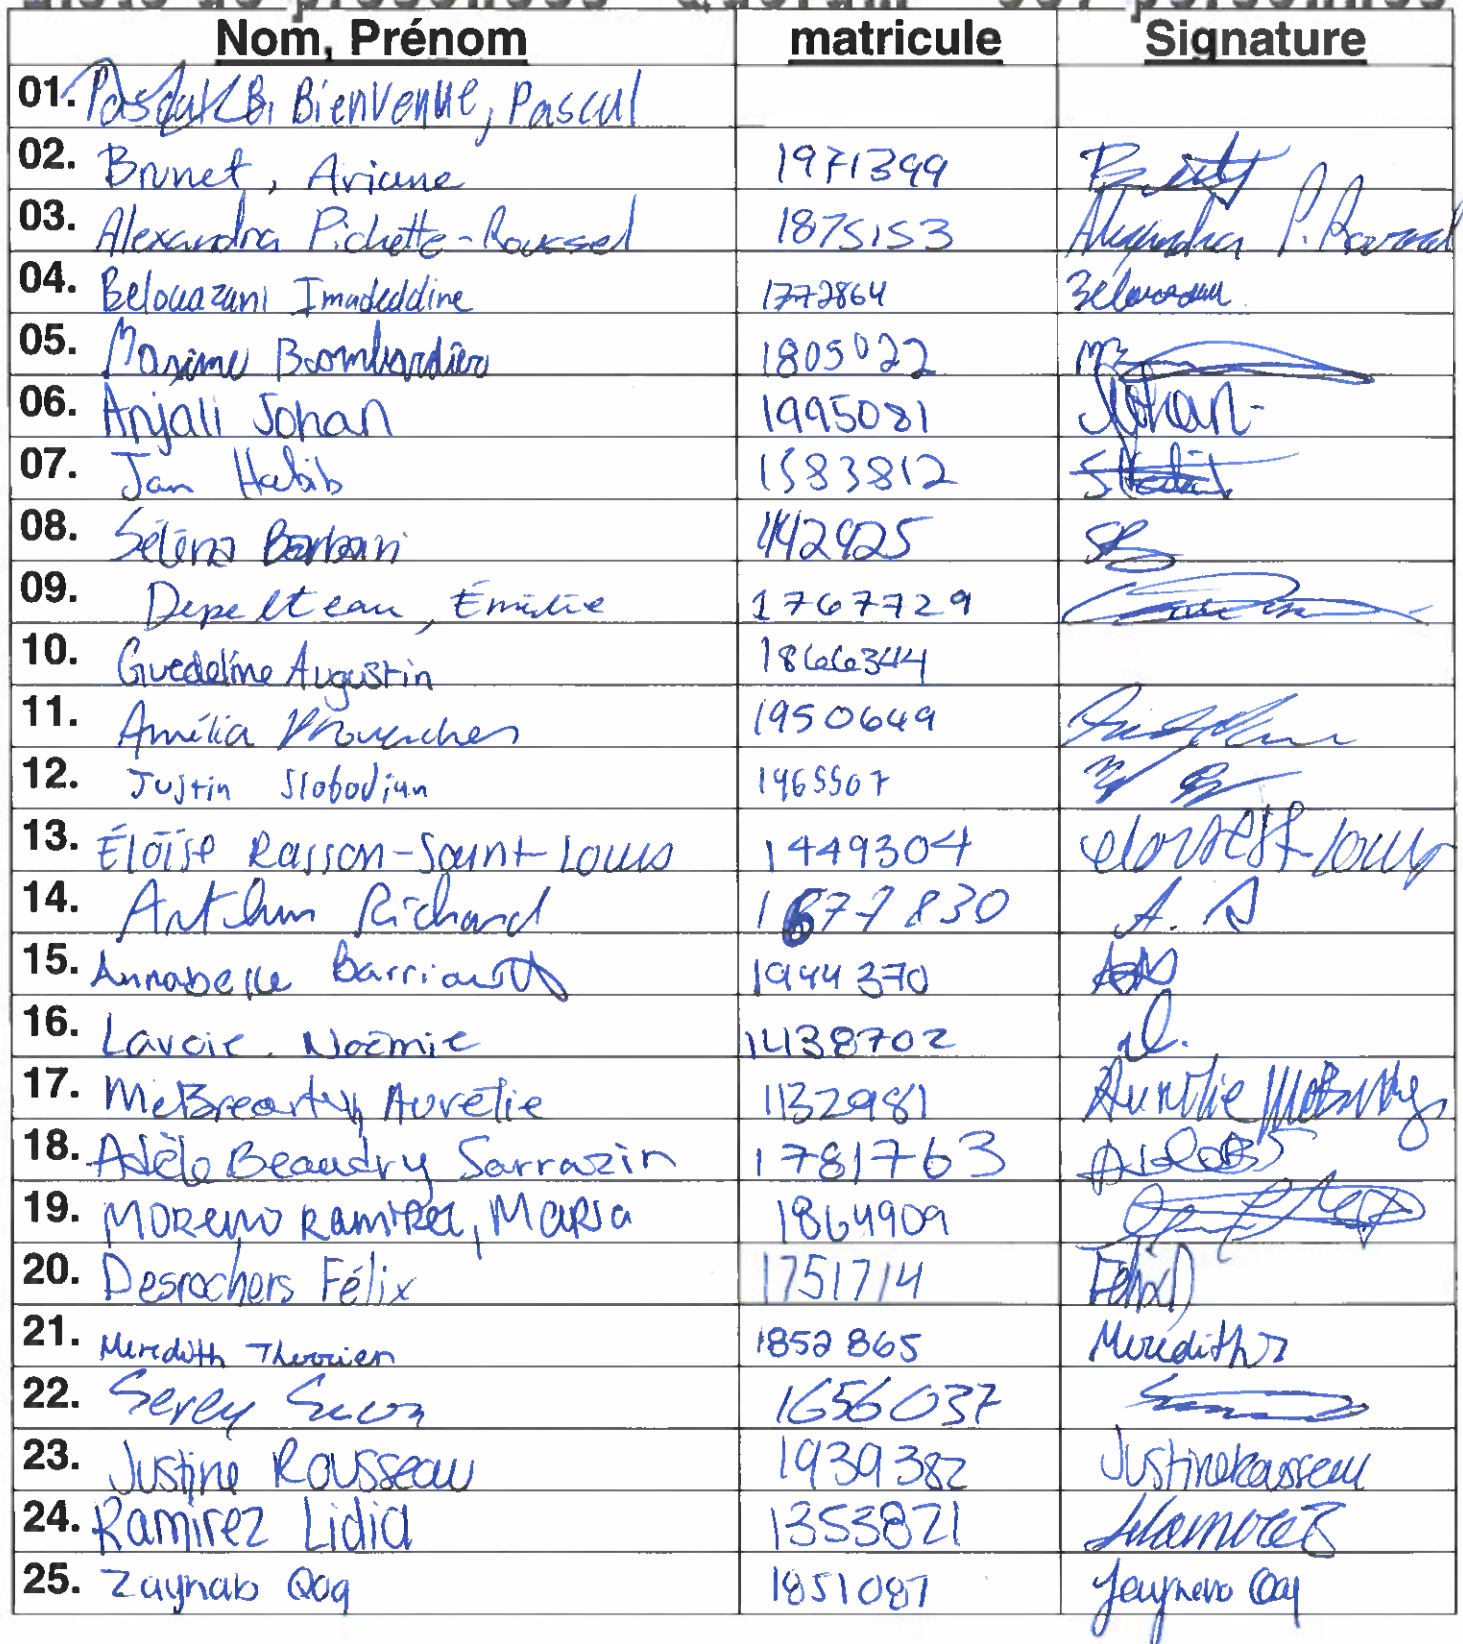 Liste de présences - Quorum
Nom, Prénom matricule Signature
01. Pascal B. Bienvenue, Pascal
02. Brunet, Ariane 1971399
03. Alexandra Pichette-Roussel 1875153 Alexandra P. Roussel
04. Belouazani Imadeddine 1772864
05. Maxime Bombardier 1805022 MB
06. Anjali Johan 1995081
07. Jan Habib 1583812
08. Séléna Barbari 442925 SB
09. Depelteau, Émilie 1767729
10. Guedeline Augustin 1866344
11. Amélia 1950649
12. Justin Slobodian 1965507
13. Éloïse Rasson-Saint-Louis 1449304
14. Arthur Richard 1677830 A. R
15. Annabelle Barriault 1944370
16. Lavoie, Noémie 1438702
17. McBrearty, Aurélie 1132981 Aurélie McBrearty
18. Adèle Beaudry Sarrazin 1781763
19. Moreno Ramirez, Maria 1864909
20. Desrochers Félix 1751714 Félix D
21. Meredith Therrien 1852865 Meredith T
22. Serey 1656037
23. Justine Rousseau 1939382 Justine Rousseau
24. Ramirez Lidia 1353821
25. Zaynab Qaq 1851087